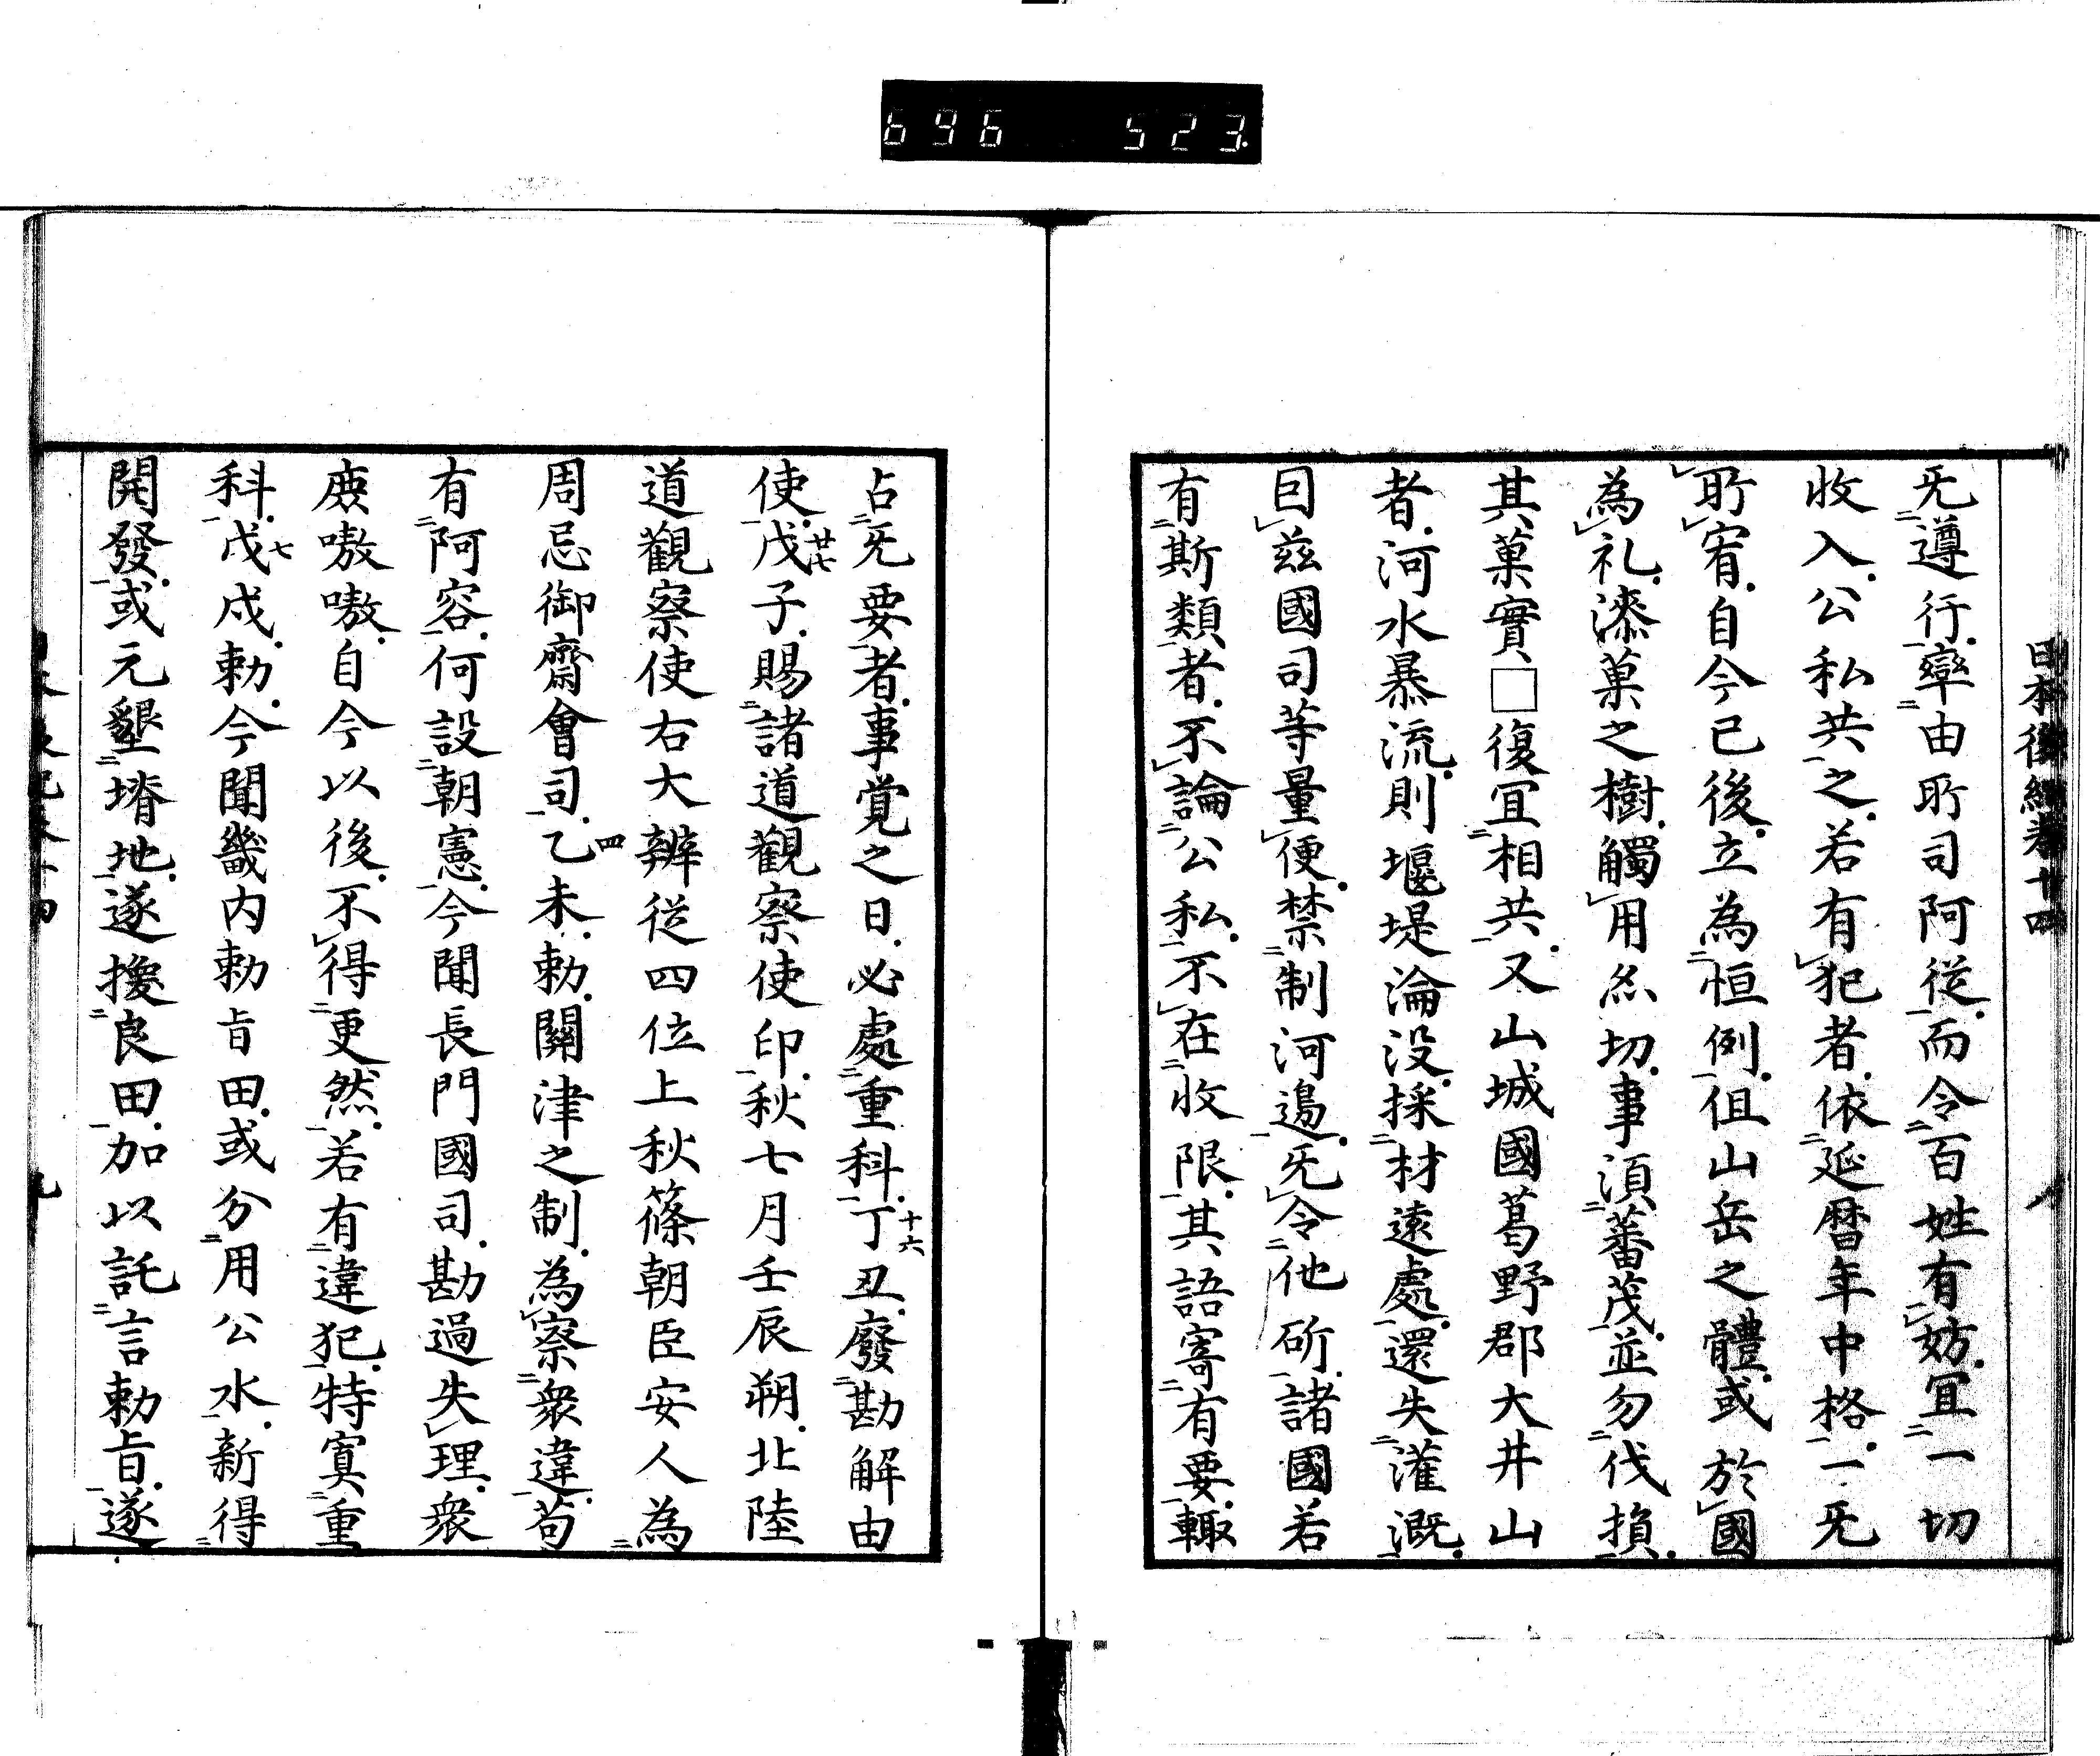 696 523.
日本後紀卷十四 八
旡遵行犖由所司阿従而令百姓有妨冝一切
收入公私共之若有犯者依延暦年中格一旡
所宥自今已後立為恒例但山岳之體或於國
為礼漆菓之樹觸用糸切事須蕃茂並勿伐損
其菓實□復冝相共又山城國葛野郡大井山
者河水暴流則堰堤淪没採材遠處還失灌漑
因茲國司等量便禁制河邊旡令他斫諸國若
有斯類者不論公私不在收限其語寄有要輙
占旡要者事覚之日必處重科丁丑十六廢勘解由
使戊子廿七賜諸道觀察使印秋七月壬辰朔北陸
道觀察使右大辨従四位上秋篠朝臣安人為
周忌御齋會司乙未四勅關津之制為察衆違苟
有阿容何設朝憲今聞長門國司勘過失理衆
庶嗷嗷自今以後不得更然若有違犯特寘重
科戊戌七勅今聞畿内勅旨田或分用公水新得
開發或元墾塉地遂換良田加以託言勅旨遂
九